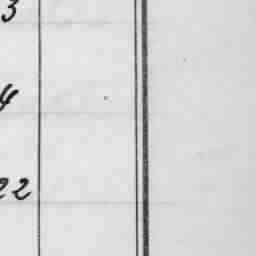 3
4
22